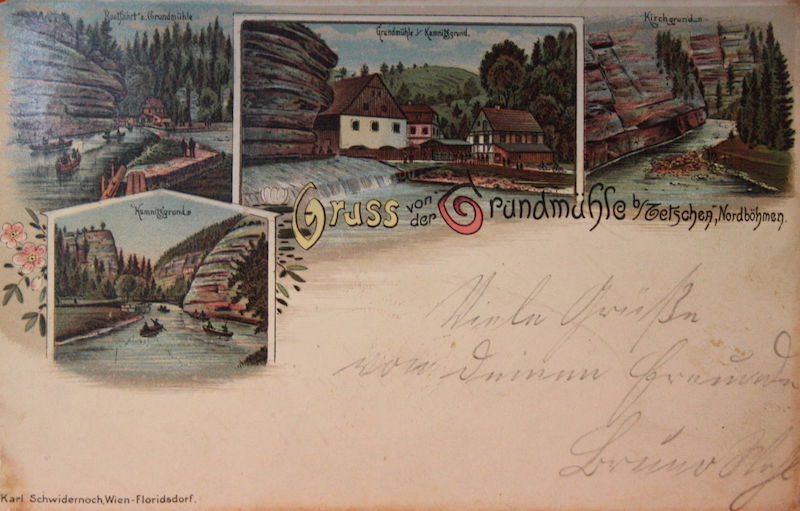 Bootfahrt a. Grundmühle
Grundmühle i. Kamnitzgrund.
Kirchgrund
Kamnitzgrund
Gruss von der Grundmühle b/Tetschen, Nordböhmen.
Viele Grüße
von deinem Freunde
Bruno
Karl Schwidernoch, Wien-Floridsdorf.